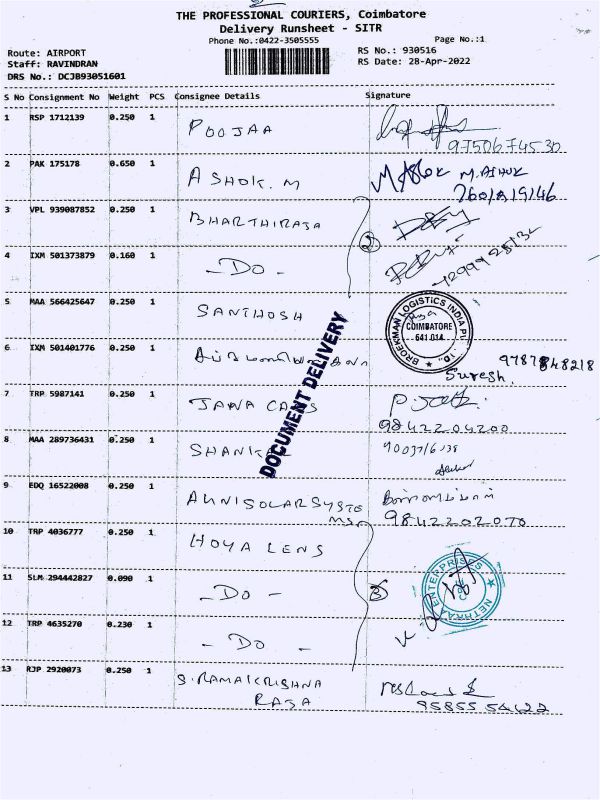 THE PROFESSIONAL COURIERS, Coimbatore
Delivery Runsheet - SITR
Phone No.:0422-3505555
Page No.:1
Route: AIRPORT
RS No.: 930516
Staff: RAVINDRAN
RS Date: 28-Apr-2022
DRS No.: DCJB93051601
S No Consignment No Weight PCS Consignee Details Signature
1 RSP 1712139 0.250 1 POOJAA
9750674530
2 PAK 175178 0.650 1 ASHOK. M M.ASHOK
3 VPL 939087852 0.250 1 BHARTHIRAJA
2
4 IXM 501373879 0.160 1 - DO -
5 MAA 566425647 0.250 1 SANTHOSH
BROEKMAN LOGISTICS INDIA
COIMBATORE
641 014
6 IXM 501401776 0.250 1
Suresh.
DOCUMENT DELIVERY
7 TRP 5987141 0.250 1 JAWA
9842204200
8 MAA 289736431 0.250 1
9 EDQ 16522008 0.250 1 AUNISOLARSYSTE
MS.
9842202070
10 TRP 4036777 0.250 1 HOYA LENS
11 SLM 294442827 0.090 1 - DO -
3
NETHRAA ENTERPRISES
12 TRP 4635270 0.230 1 - DO -
13 RJP 2920073 0.250 1 S.RAMAKRISHNA
RAJA